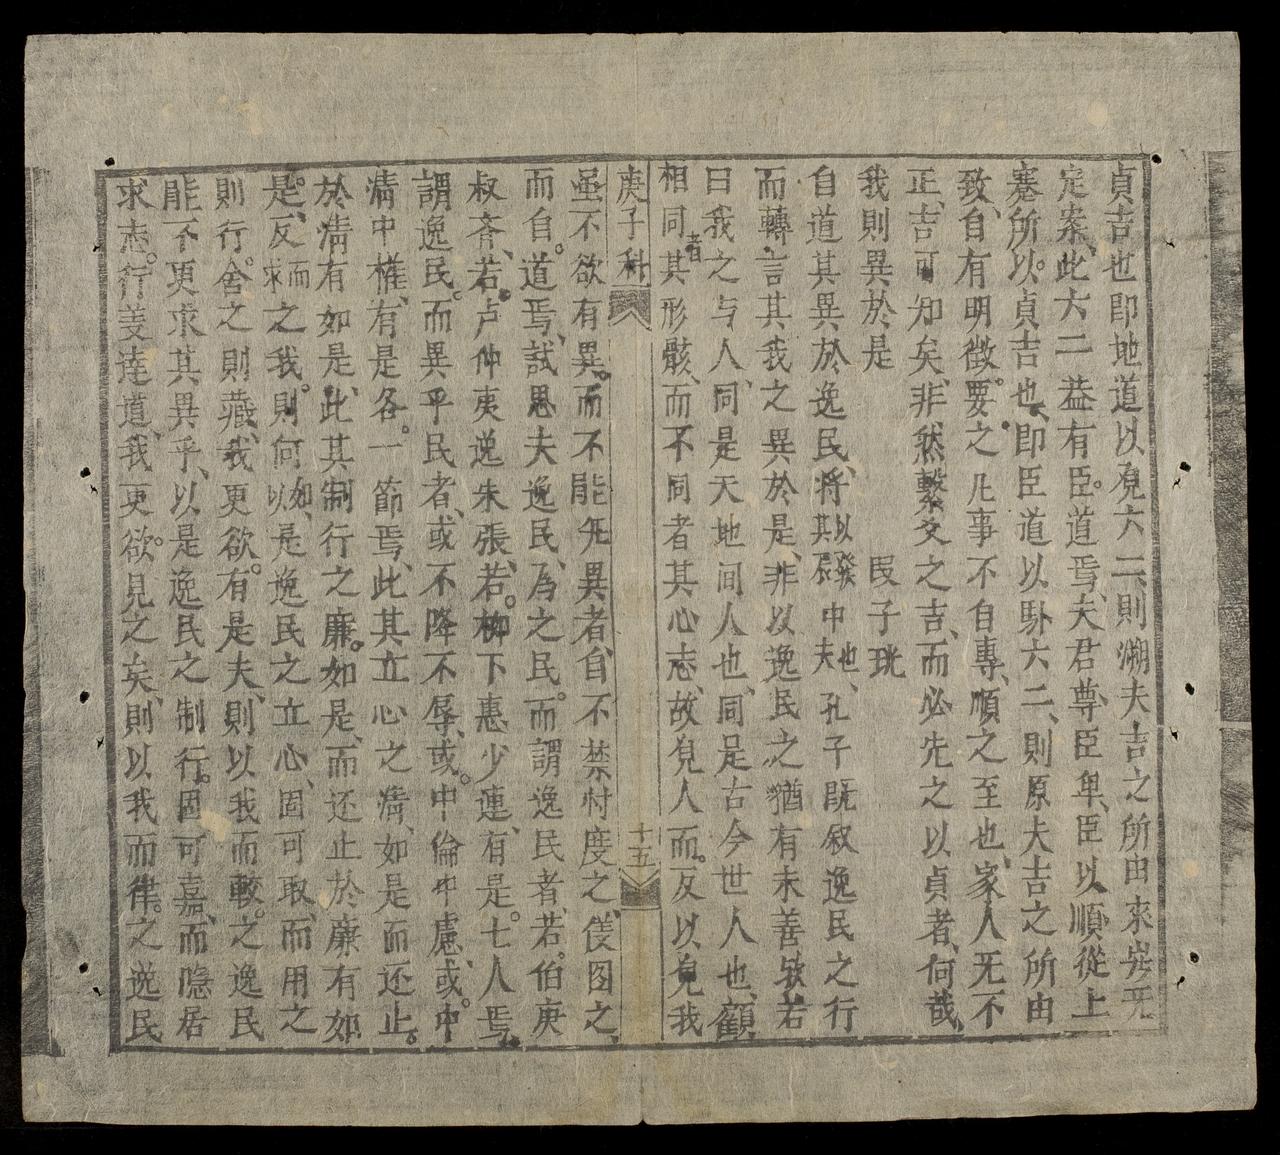 貞吉也即地道以覔六二則溯夫吉之所由來葢无
定案此六二益有臣道焉夫君尊臣卑臣以順從上
蹇所以貞吉也即臣道以卦六二則原夫吉之所由
致自有明徵要之凡事不自專順之至也家人无不
正吉可知矣非然繫爻之吉而必先之以貞者何哉
我則異於是 叚子珖
自道其異於逸民將以發其辰中也夫孔子既叙逸民之行
而轉言其我之異於是非以逸民之猶有未善欤若
曰我之与人同是天地间人也同是古今世人也顧
相同者其形骸而不同者其心志故覔人而反以覔我
庚子科 十五
虽不欲有異而不能无異者自不禁忖度之僾图之
而自道焉試思夫逸民為之民而謂逸民者若伯庚
叔斉若卢仲夷逸朱張若柳下惠少連有是七人焉
謂逸民而異乎民者或不降不辱或中倫中慮或中
清中權有是各一節焉此其立心之清如是而还止
於清有如是此其制行之廉如是而还止於廉有如
是反而求之我則何如以是逸民之立心固可取而用之
則行舍之則藏我更欲有是夫則以我而較之逸民
能不更求其異乎以是逸民之制行固可嘉而隐居
求志行義達道我更欲見之矣則以我而律之逸民